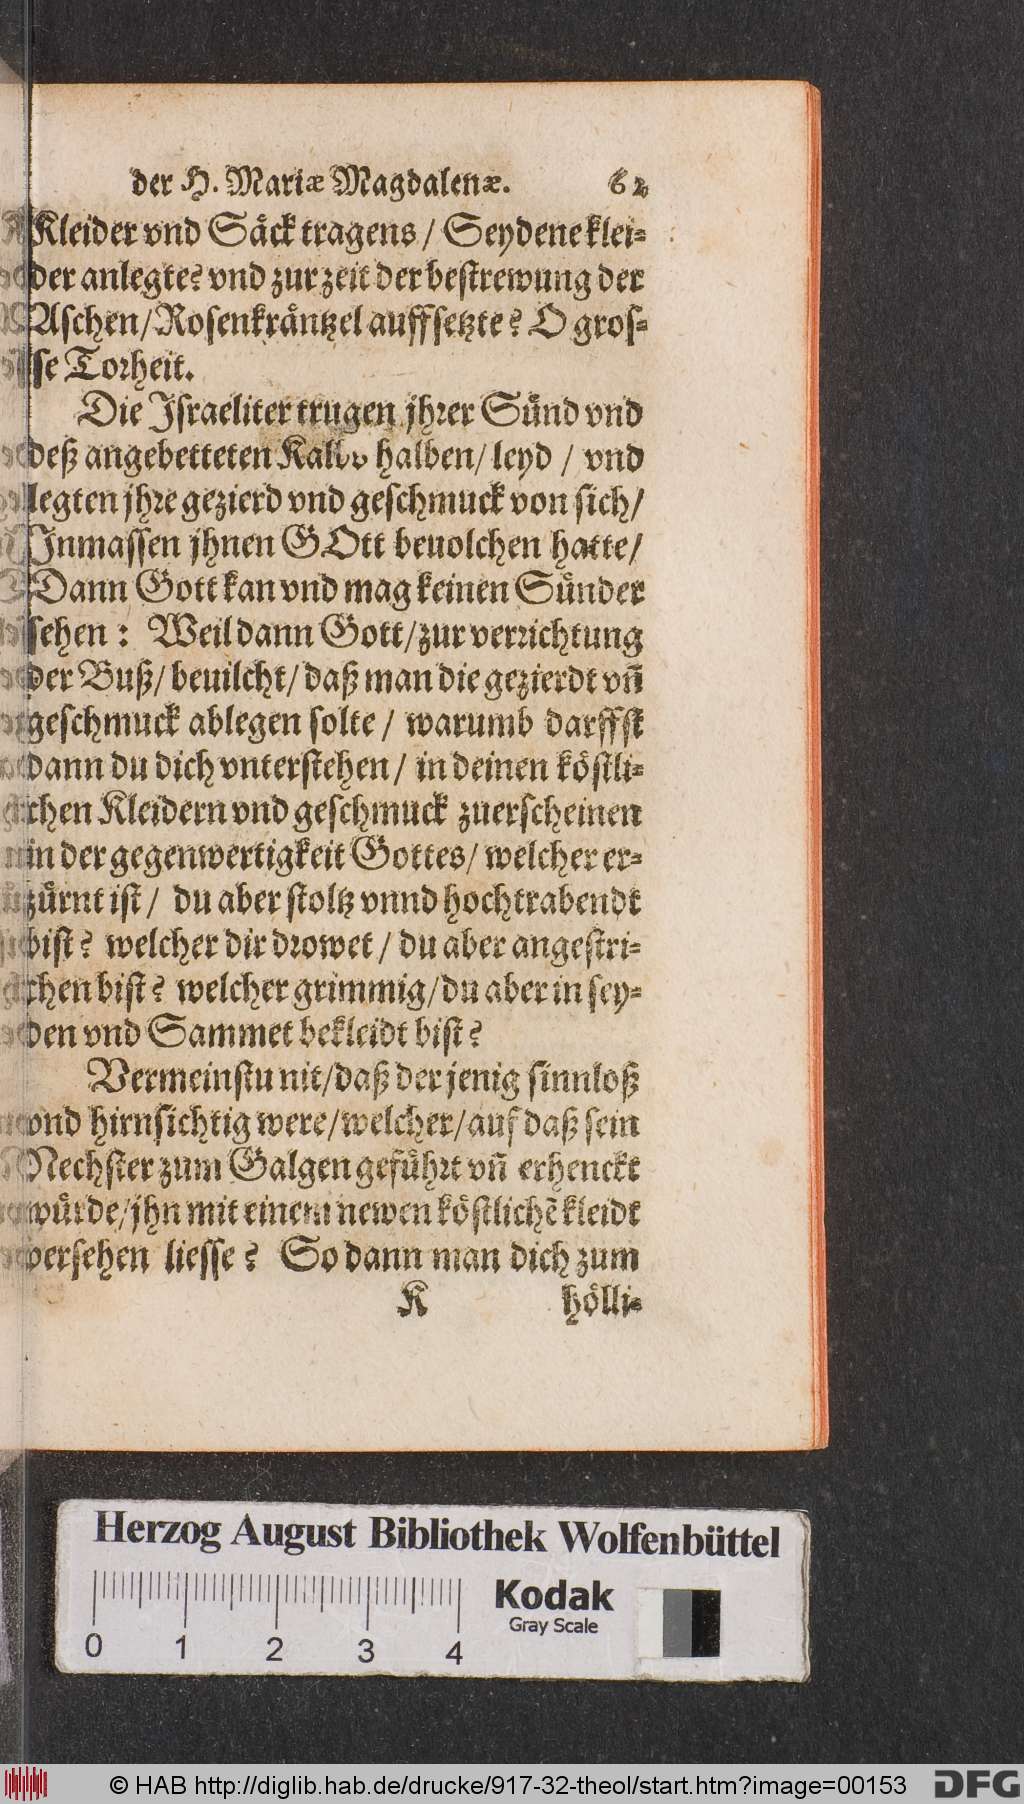 der H. Mariæ Magdalenæ. 62
Kleider vnd Säck tragens / Seydene klei-
der anlegte? vnd zur zeit der bestrewung der
Aschen/Rosenkräntzel auffsetzte? O gros-
se Torheit.
Die Israeliter trugen jhrer Sünd vnd
deß angebetteten Kalbs halben/ leyd / vnd
legten jhre gezierd vnd geschmuck von sich/
Inmassen jhnen GOtt beuolchen hatte/
Dann Gott kan vnd mag keinen Sünder
sehen : Weil dann Gott/zur verrichtung
der Buß/ beuilcht/ daß man die gezierdt vñ
geschmuck ablegen solte / warumb darffst
dann du dich vnterstehen / in deinen köstli-
chen Kleidern vnd geschmuck zuerscheinen
in der gegenwertigkeit Gottes/ welcher er-
zürnt ist / du aber stoltz vnnd hochtrabendt
bist? welcher dir drowet / du aber angestri-
chen bist? welcher grimmig/du aber in sey-
den vnd Sammet bekleidt bist?
Vermeinstu nit/daß der jenig sinnloß
vnd hirnsichtig were/welcher/auf daß sein
Nechster zum Galgen geführt vñ erhenckt
würde/jhn mit einem newen köstlichẽ kleidt
versehen liesse? So dann man dich zum
K hölli-
Herzog August Bibliothek Wolfenbüttel
Kodak
Gray Scale
0 1 2 3 4
© HAB http://diglib.hab.de/drucke/917-32-theol/start.htm?image=00153
DFG